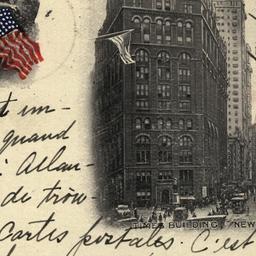 t un-
quand
: Allan-
de trow-
Cartes postales. C'est
TIMES BUILDING, NEW